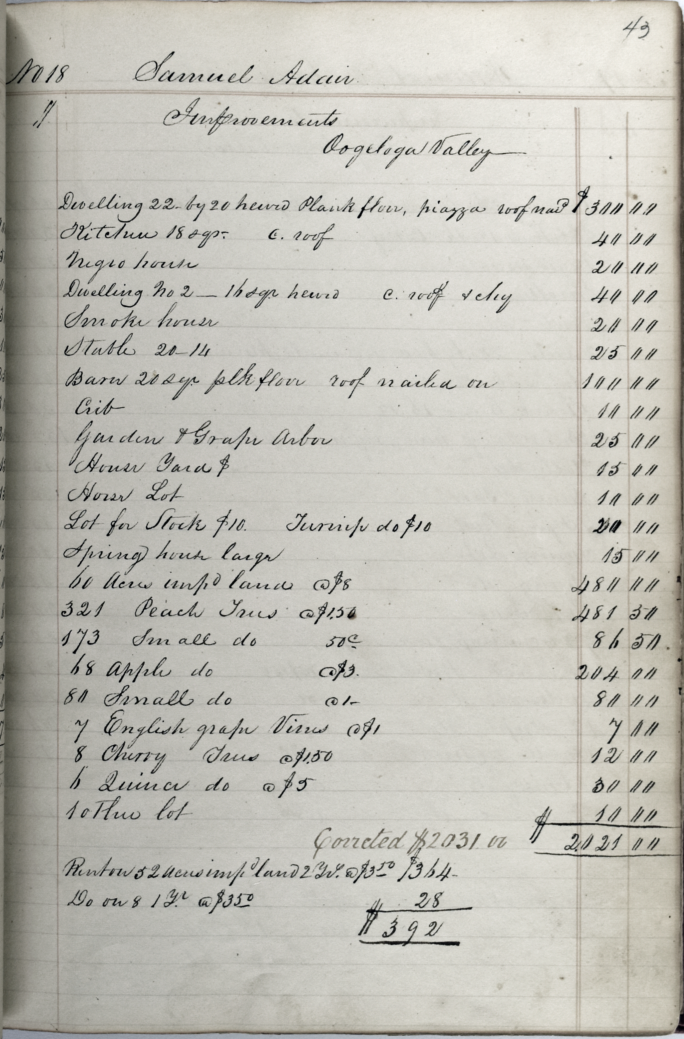 43
No 18 Samuel Adair
Improvements
Oogeloga Valley
Dwelling 22 by 20 hewd Plank floor, piazza roof naild $300 00
Kitchen 18 sqr. C. roof 40 00
Negro house 20 00
Dwelling No 2 — 16 sqr hewd C. roof & chy 40 00
Smoke house 20 00
Stable 20-14 25 00
Barn 20 sqr plk floor roof nailed on 100 00
Crib 10 00
Garden & Grape Arbor 25 00
House Yard $ 15 00
Horse Lot 10 00
Lot for Stock $10. Turnip do $10 20 00
Spring house large 15 00
60 Acres impd land @ $8 480 00
321 Peach Trees @ $1.50 481 50
173 Small do 50c 86 50
68 Apple do @ $3. 204 00
80 Small do @ 1- 80 00
7 English grape Vines @ $1 7 00
8 Cherry Trees @ $1.50 12 00
6 Quince do @ $5 30 00
1 other lot 10 00
Corrected $2031.00 $ 2021 00
Rent on 52 acres impd land 2 Yr. @ $3.50 $364-
Do on 8 1 Yr @ $3.50 28
$ 392